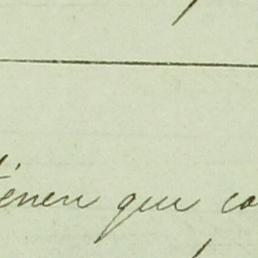 tienen que co